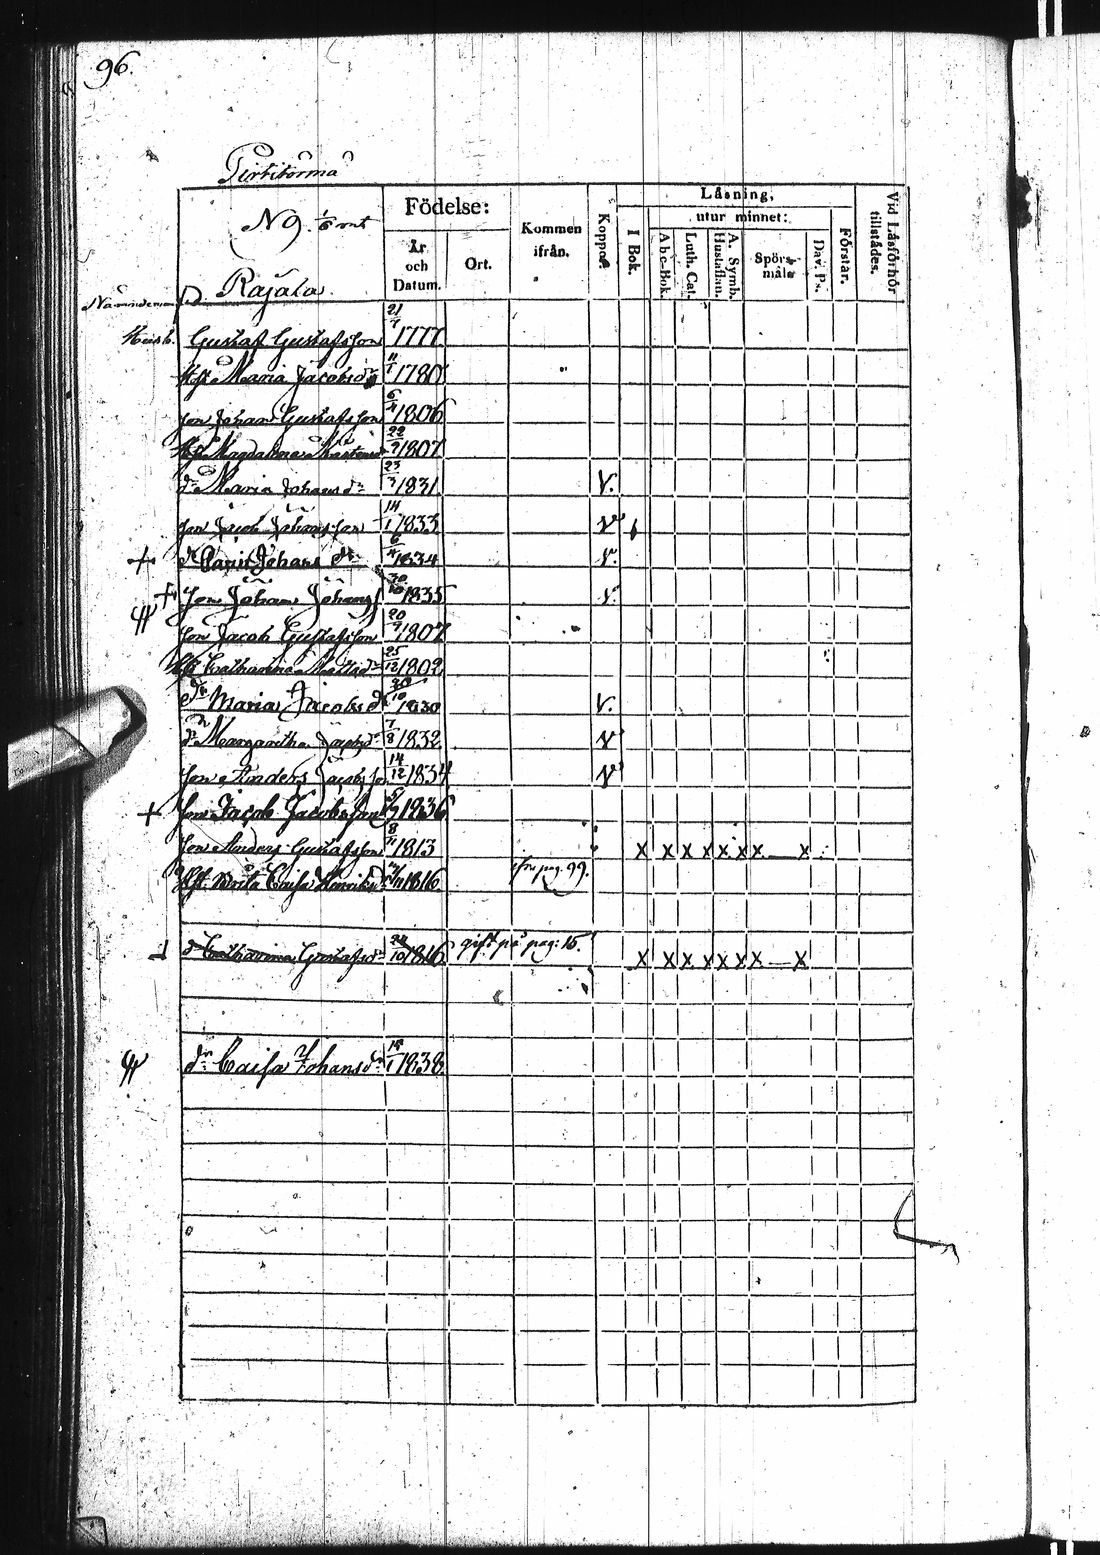 96.
Pirtitörmä
N 9. 1/6 mt
Rajala
Födelse:
År och Datum.
Ort.
Kommen ifrån.
Koppor.
Läsning,
I Bok.
utur minnet:
Abc-Bok.
Luth. Cat.
A. Symb. Hustaflan.
Spörsmåls
Dav. Ps.
Förstår.
Vid Läsförhör tillstädes.
Nämndeman
Husb. Gustaf Gustafsson 21/7 1777
Hst. Maria Jacobsdr 11/1 1780
Son Johan Gustafsson 6/4 1806
Hst. Magdalena 22/9 1807
dr Maria Johansdr 23/3 1831 V.
Son Jacob Johansson 14/1 1833 V
+ dr Carin Johansdr 6/4 1834 V.
+ Son Johan Johans 30/10 1835 V.
Son Jacob Gustafsson 20/7 1807
Hst. Catharina Mattsdr 25/12 1802
dr Maria Jacobsdr 30/10 1830 V.
dr Margaretha Jacobsdr 7/8 1832 V
Son Anders Jacobsson 14/12 1834 V
+ Son Jacob Jacobsson 1836
Son Anders Gustafsson 8/11 1813 X X X X X X X — X
Hst. Brita Caisa Henriksdr /11 1816 ifr. pag. 99.
dr Catharina Gustafsdr 24/10 1816 gift på pag: 15. X X X X X X X — X
dr Caisa Johansdr 15/1 1838.